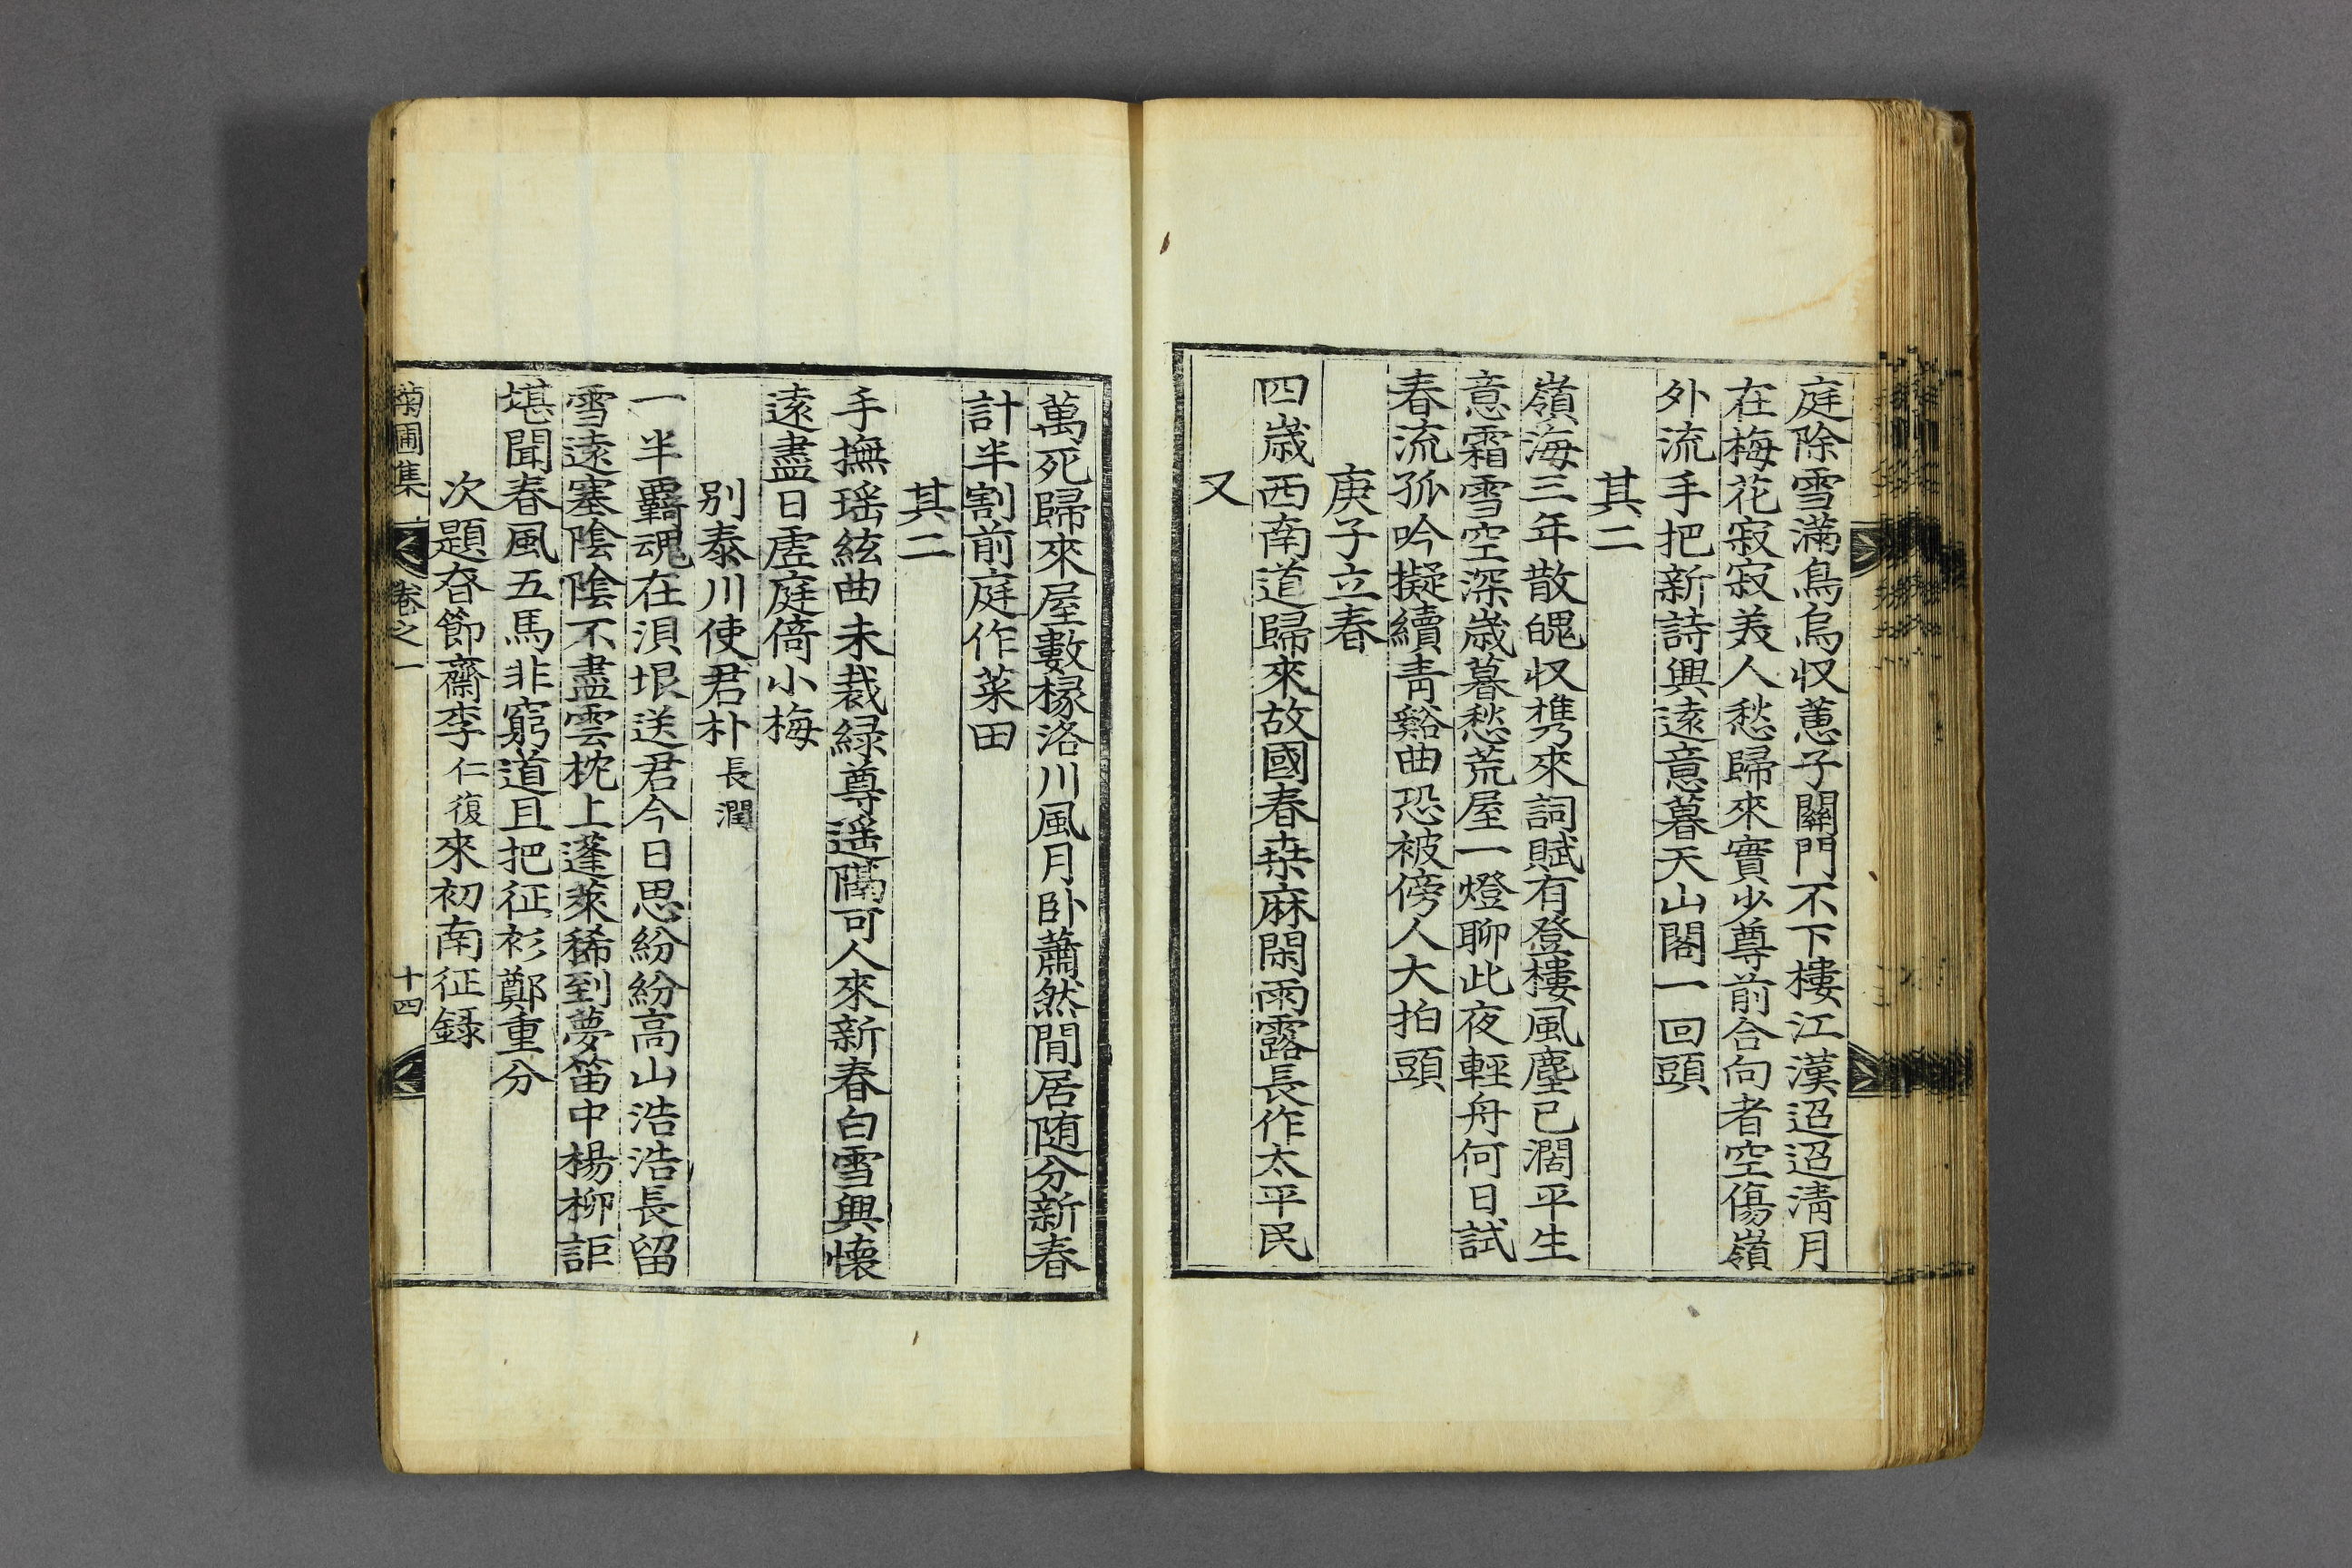 庭除雪滿鳥烏収蕙子關門不下樓江漢迢迢淸月
在梅花寂寂美人愁歸來實少尊前合向者空傷嶺
外流手把新詩興遠意暮天山閣一回頭
其二
嶺海三年散魄収携來詞賦有登樓風塵已濶平生
意霜雪空深歲暮愁荒屋一燈聊此夜輕舟何日試
春流孤吟擬續靑谿曲恐被傍人大拍頭
庚子立春
四歲西南道歸來故國春桒麻閑雨露長作太平民
又
萬死歸來屋數椽洛川風月卧蕭然閒居随分新春
計半割前庭作菜田
其二
手撫瑶絃曲未裁緑尊遥隔可人來新春白雪興懷
遠盡日虗庭倚小梅
別泰川使君朴長潤
一半覊魂在浿垠送君今日思紛紛高山浩浩長留
雪遠塞隂隂不盡雲枕上蓬萊稀到夢笛中楊柳詎
堪聞春風五馬非窮道且把征衫鄭重分
次題昚節齋李仁復來初南征録
菊圃集 卷之一 十四